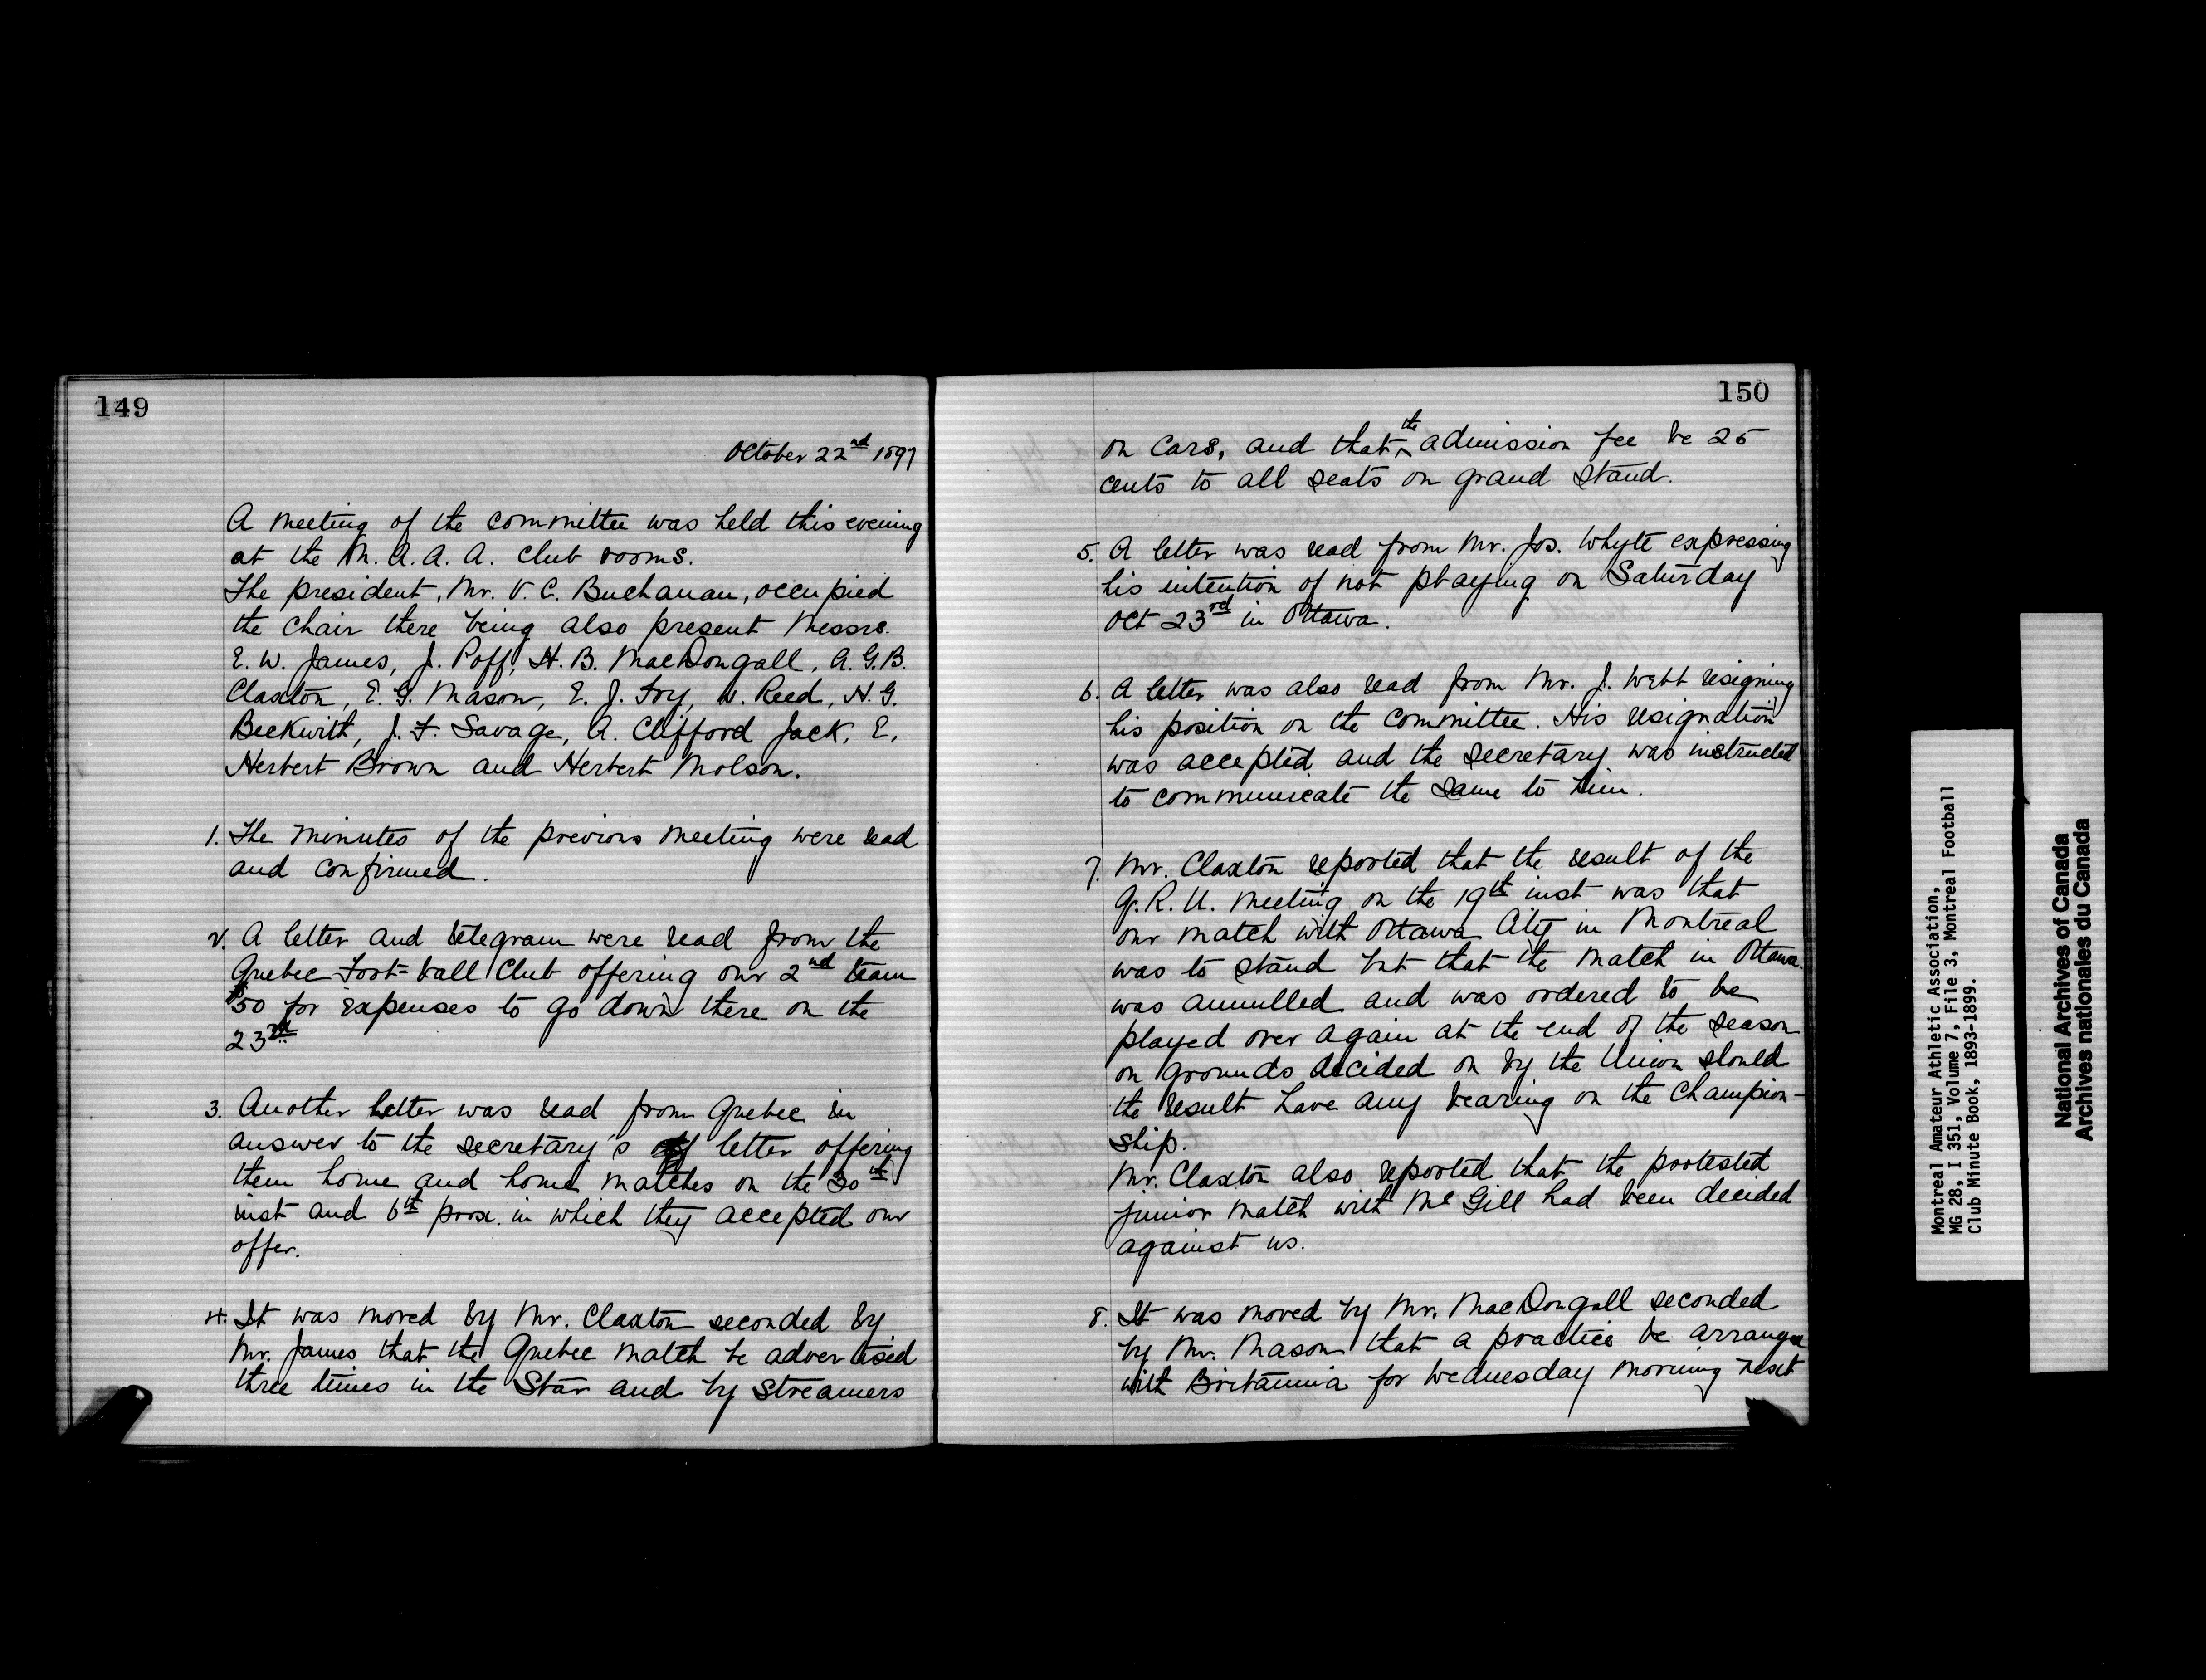 149
October 22nd 1897
A meeting of the committee was held this evening
at the M. A. A. A. club rooms.
The president, Mr. V. C. Buchanan, occupied
the chair there being also present Messrs.
E. W. James, J. Poff, H. B. MacDougall, A. G. B.
Claxton, E. G. Mason, E. J. Fry, W. Reed, H. G.
Beckwith, J. F. Savage, A. Clifford Jack, E.
Herbert Brown and Herbert Molson.
1. The minutes of the previous meeting were read
and confirmed.
2. A letter and telegram were read from the
Quebec Foot-ball Club offering our 2nd team
$50 for expenses to go down there on the
23rd
3. Another letter was read from Quebec in
answer to the secretary's letter offering
them home and home matches on the 30th
inst and 6th prox. in which they accepted our
offer.
4. It was moved by Mr. Claxton seconded by
Mr. James that the Quebec match be advertised
three times in the Star and by streamers
150
on cars, and that the admission fee be 25
cents to all seats on grand stand.
5. A letter was read from Mr. Jos. Whyte expressing
his intention of not playing on Saturday
Oct 23rd in Ottawa.
6. A letter was also read from Mr. J. Webb resigning
his position on the committee. His resignation
was accepted and the secretary was instructed
to communicate the same to him.
7. Mr. Claxton reported that the result of the
Q. R. U. meeting on the 19th inst was that
our match with Ottawa City in Montreal
was to stand but that the match in Ottawa
was annulled and was ordered to be
played over again at the end of the season
on grounds decided on by the Union should
the result have any bearing on the Champion-
ship.
Mr. Claxton also reported that the protested
junior match with McGill had been decided
against us.
8. It was moved by Mr. MacDougall seconded
by Mr. Mason that a practice be arranged
with Britannia for Wednesday morning next
Montreal Amateur Athletic Association,
MG 28, I 351, Volume 7, File 3, Montreal Football
Club Minute Book, 1893-1899.
National Archives of Canada
Archives nationales du Canada